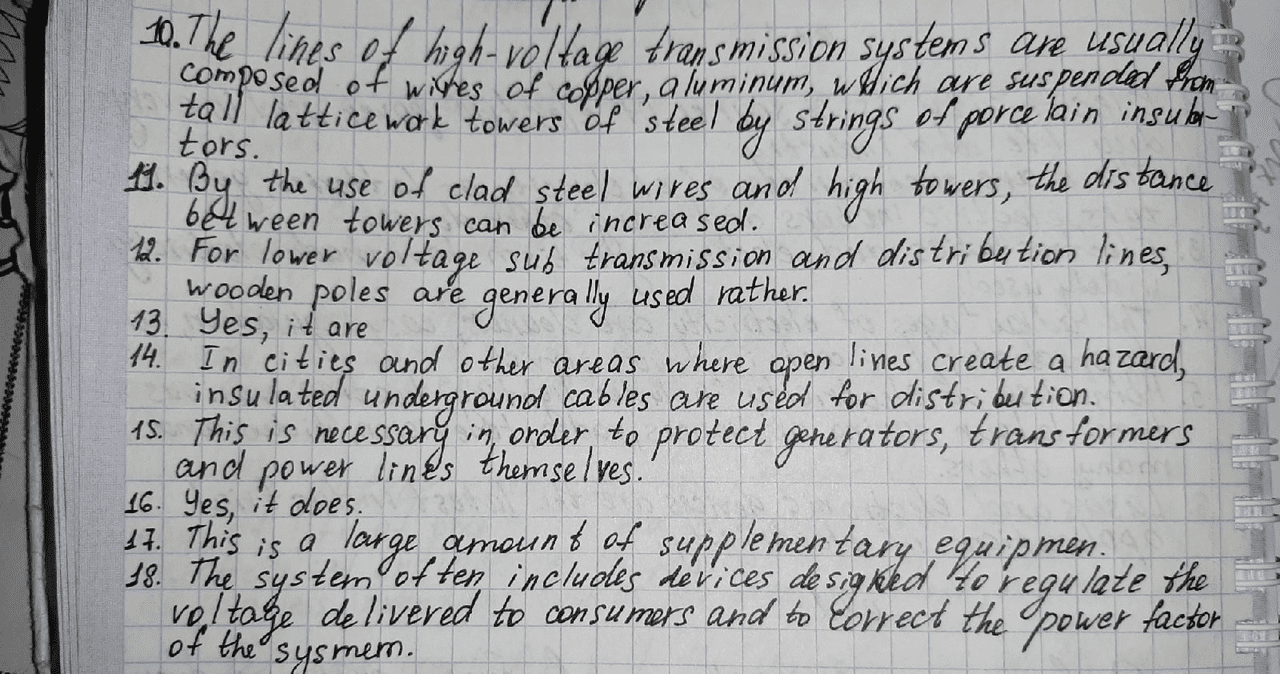 10. The lines of high-voltage transmission systems are usually
composed of wires of copper, aluminum, which are suspended from
tall latticework towers of steel by strings of porcelain insula-
tors.
11. By the use of clad steel wires and high towers, the distance
between towers can be increased.
12. For lower voltage sub transmission and distribution lines,
wooden poles are generally used rather.
13. Yes, it are
14. In cities and other areas where open lines create a hazard,
insulated underground cables are used for distribution.
15. This is necessary in order to protect generators, transformers
and power lines themselves.
16. Yes, it does.
17. This is a large amount of supplementary equipmen.
18. The system often includes devices designed to regulate the
voltage delivered to consumers and to correct the power factor
of the sysmem.